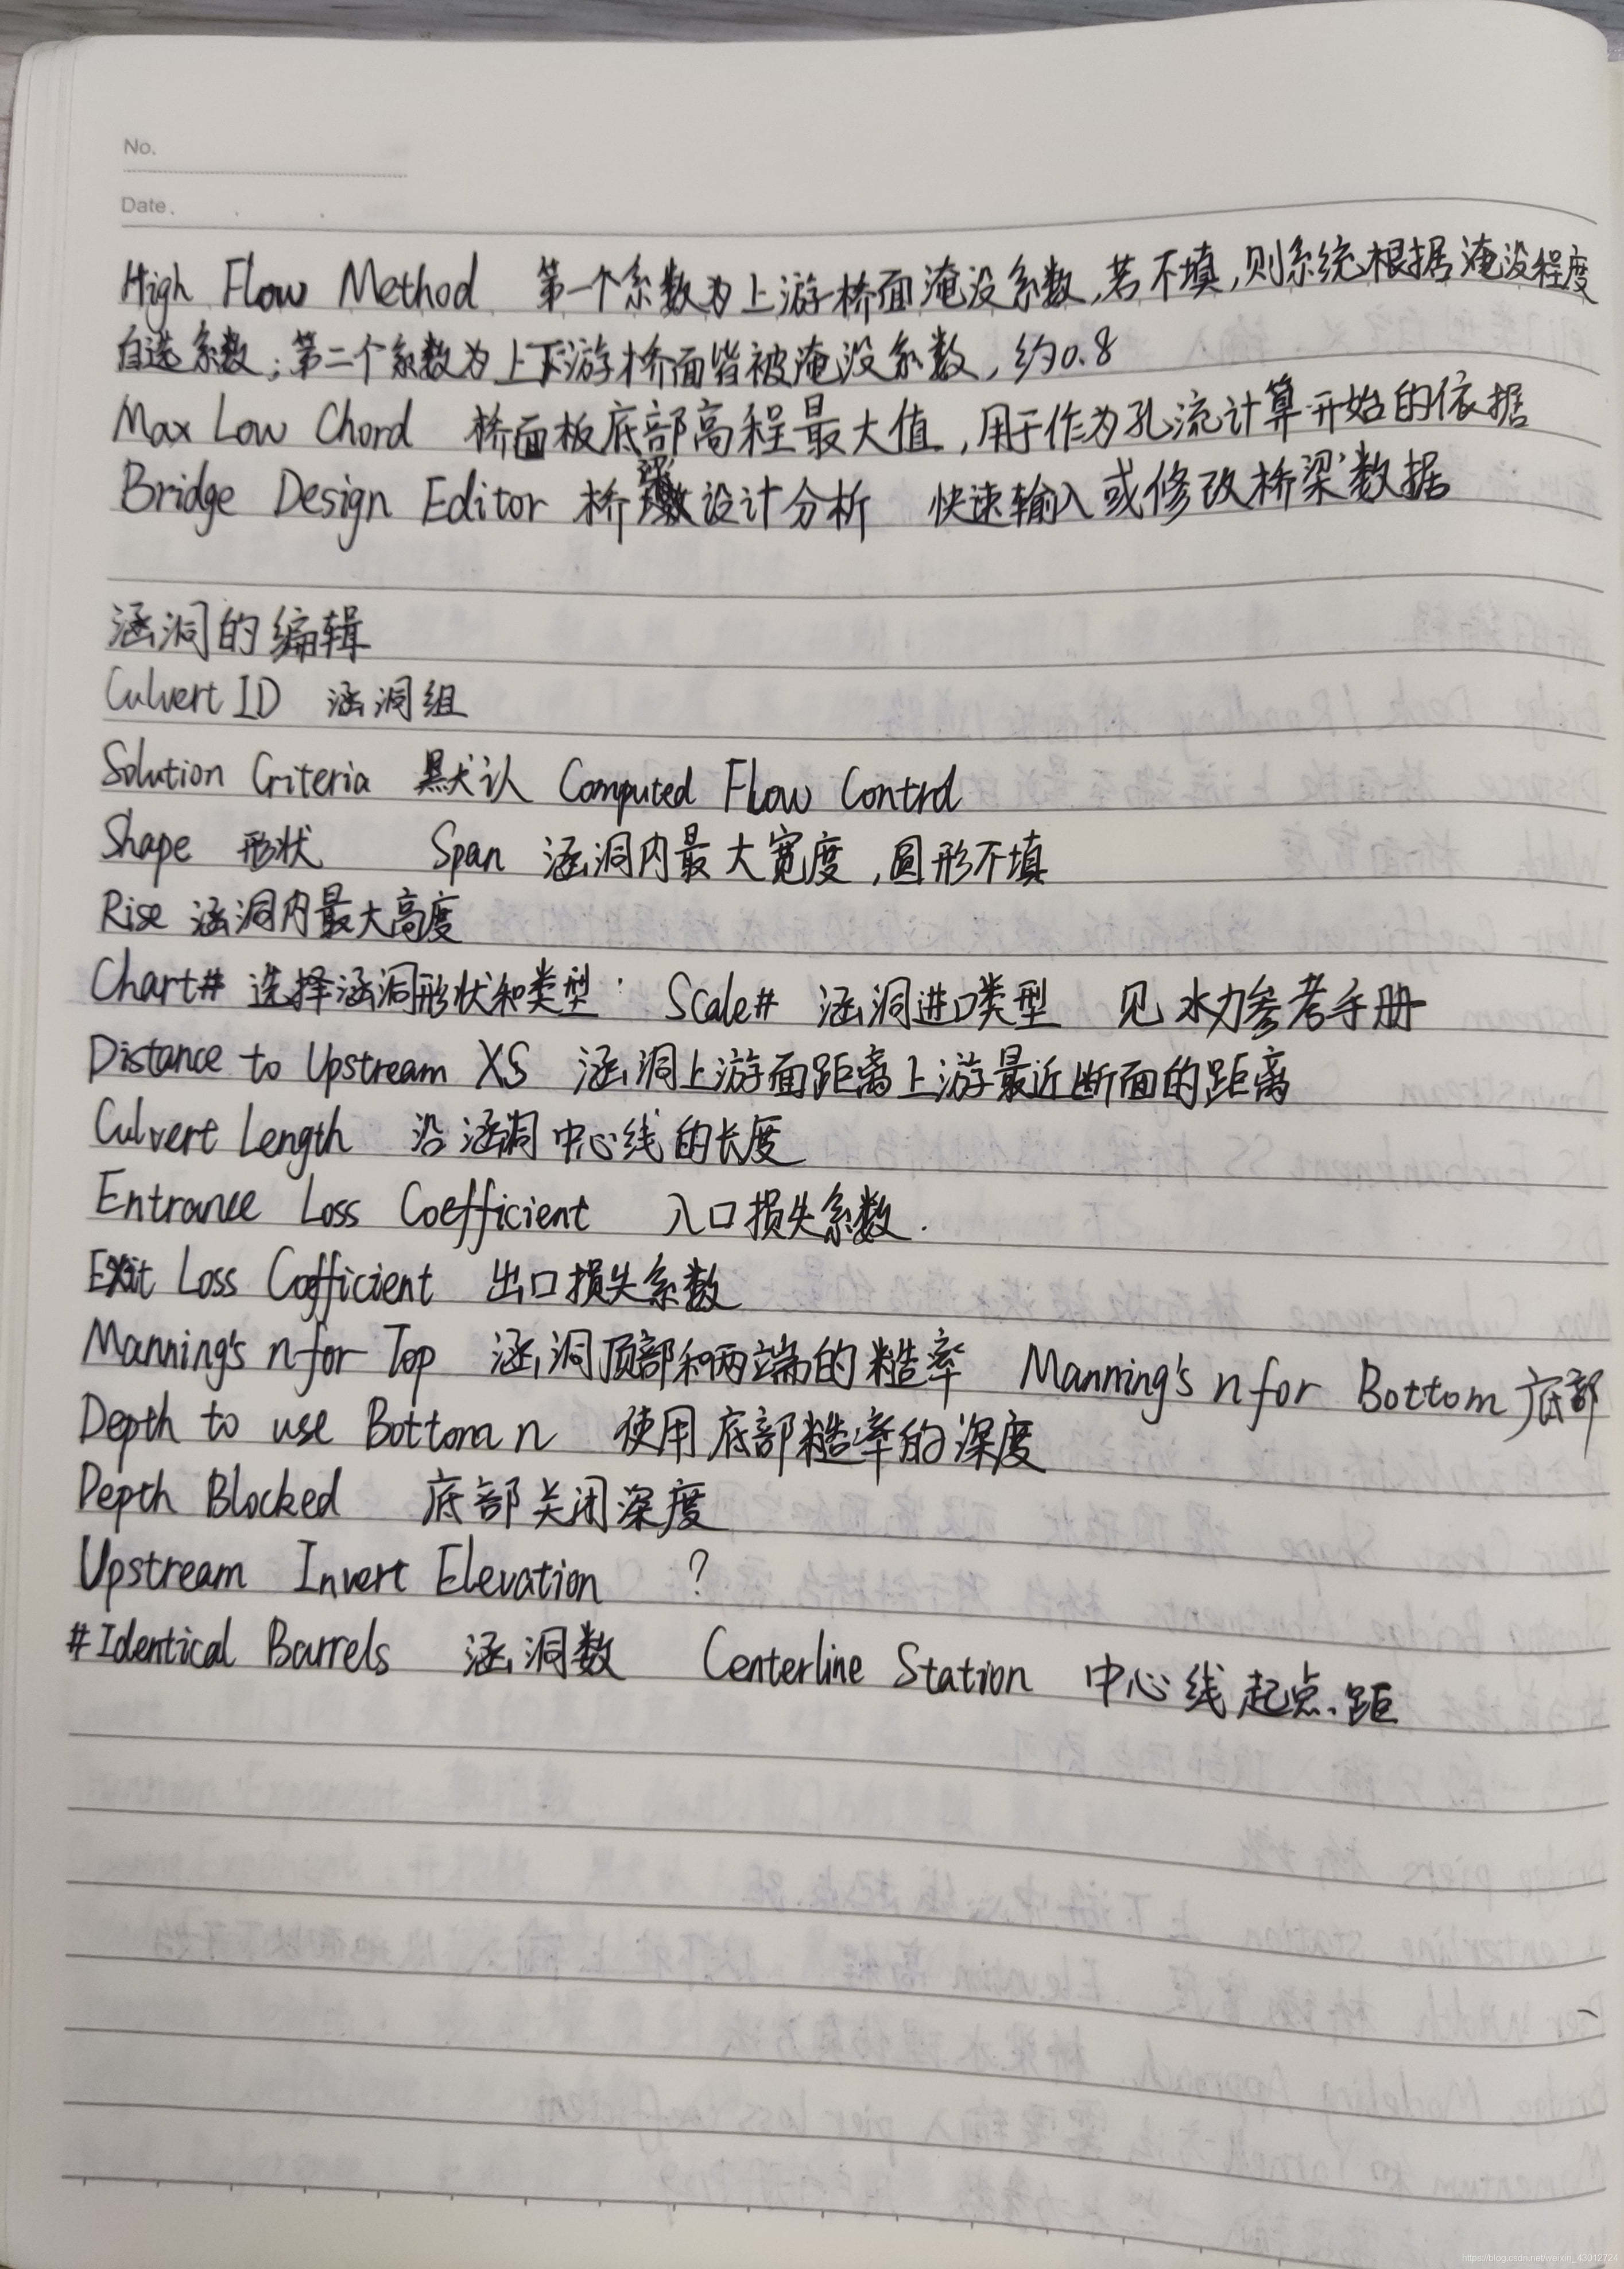 No.
Date.
High Flow Method 第一个系数为上游桥面淹没系数,若不填,则系统根据淹没程度
自选系数;第二个系数为上下游桥面皆被淹没系数,约0.8
Max Low Chord 桥面板底部高程最大值,用于作为孔流计算开始的依据
Bridge Design Editor 桥梁设计分析 快速输入或修改桥梁数据
涵洞的编辑
Culvert ID 涵洞组
Solution Criteria 默认 Computed Flow Control
Shape 形状 Span 涵洞内最大宽度,圆形不填
Rise 涵洞内最大高度
Chart# 选择涵洞形状和类型 Scale# 涵洞进口类型 见水力参考手册
Distance to Upstream XS 涵洞上游面距离上游最近断面的距离
Culvert Length 沿涵洞中心线的长度
Entrance Loss Coefficient 入口损失系数.
Exit Loss Cofficient 出口损失系数
Manning's n for Top 涵洞顶部和两端的糙率 Manning's n for Bottom 底部
Depth to use Bottom n 使用底部糙率的深度
Depth Blocked 底部关闭深度
Upstream Invert Elevation ?
#Identical Barrels 涵洞数 Centerline Station 中心线起点距
https://blog.csdn.net/weixin_43012724